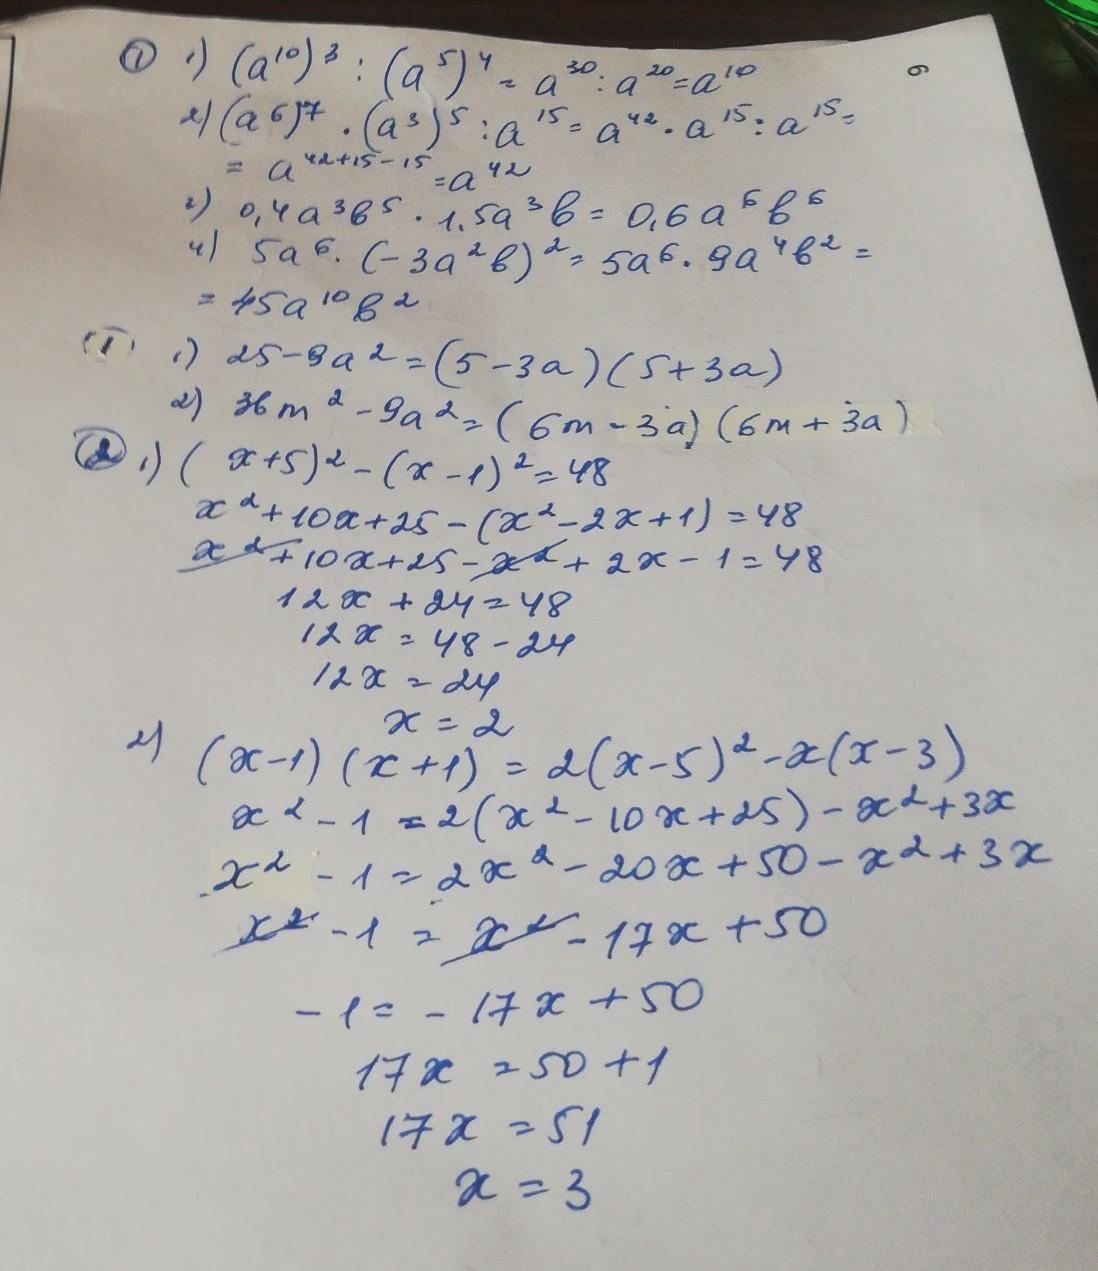 ① 1) (a¹⁰)³ : (a⁵)⁴ = a³⁰ : a²⁰ = a¹⁰
2) (a⁶)⁷ · (a³)⁵ : a¹⁵ = a⁴² · a¹⁵ : a¹⁵ =
= a⁴²⁺¹⁵⁻¹⁵ = a⁴²
2) 0,4a³b⁵ · 1,5a³b = 0,6a⁶b⁶
4) 5a⁶ · (-3a²b)² = 5a⁶ · 9a⁴b² =
= 45a¹⁰b²
(1) 1) 25-9a² = (5-3a)(5+3a)
2) 36m² - 9a² = (6m-3a)(6m+3a)
② 1) (x+5)² - (x-1)² = 48
x² + 10x + 25 - (x² - 2x + 1) = 48
x² + 10x + 25 - x² + 2x - 1 = 48
12x + 24 = 48
12x = 48 - 24
12x = 24
x = 2
2) (x-1)(x+1) = 2(x-5)² - x(x-3)
x² - 1 = 2(x² - 10x + 25) - x² + 3x
x² - 1 = 2x² - 20x + 50 - x² + 3x
x² - 1 = x² - 17x + 50
-1 = -17x + 50
17x = 50 + 1
17x = 51
x = 3
6